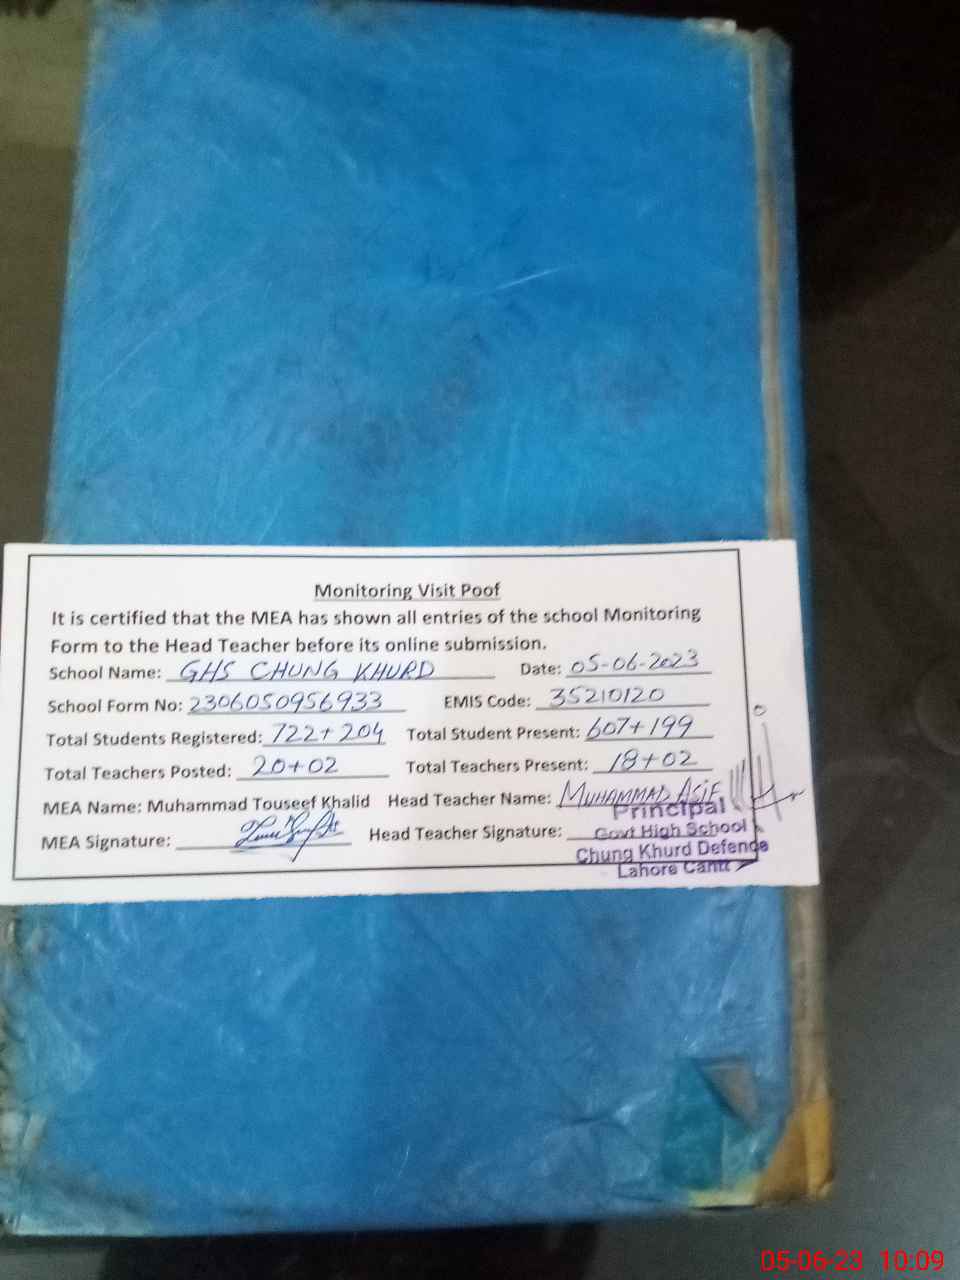 Monitoring Visit Poof
It is certified that the MEA has shown all entries of the school Monitoring
Form to the Head Teacher before its online submission.
School Name: GHS CHUNG KHURD Date: 05-06-2023
School Form No: 2306050956933 EMIS Code: 35210120
Total Students Registered: 722+204 Total Student Present: 607+199
Total Teachers Posted: 20+02 Total Teachers Present: 18+02
MEA Name: Muhammad Touseef Khalid Head Teacher Name: MUHAMMAD ASIF
MEA Signature: Head Teacher Signature:
Principal
Govt High School
Chung Khurd Defence
Lahore Cantt
05-06-23 10:09